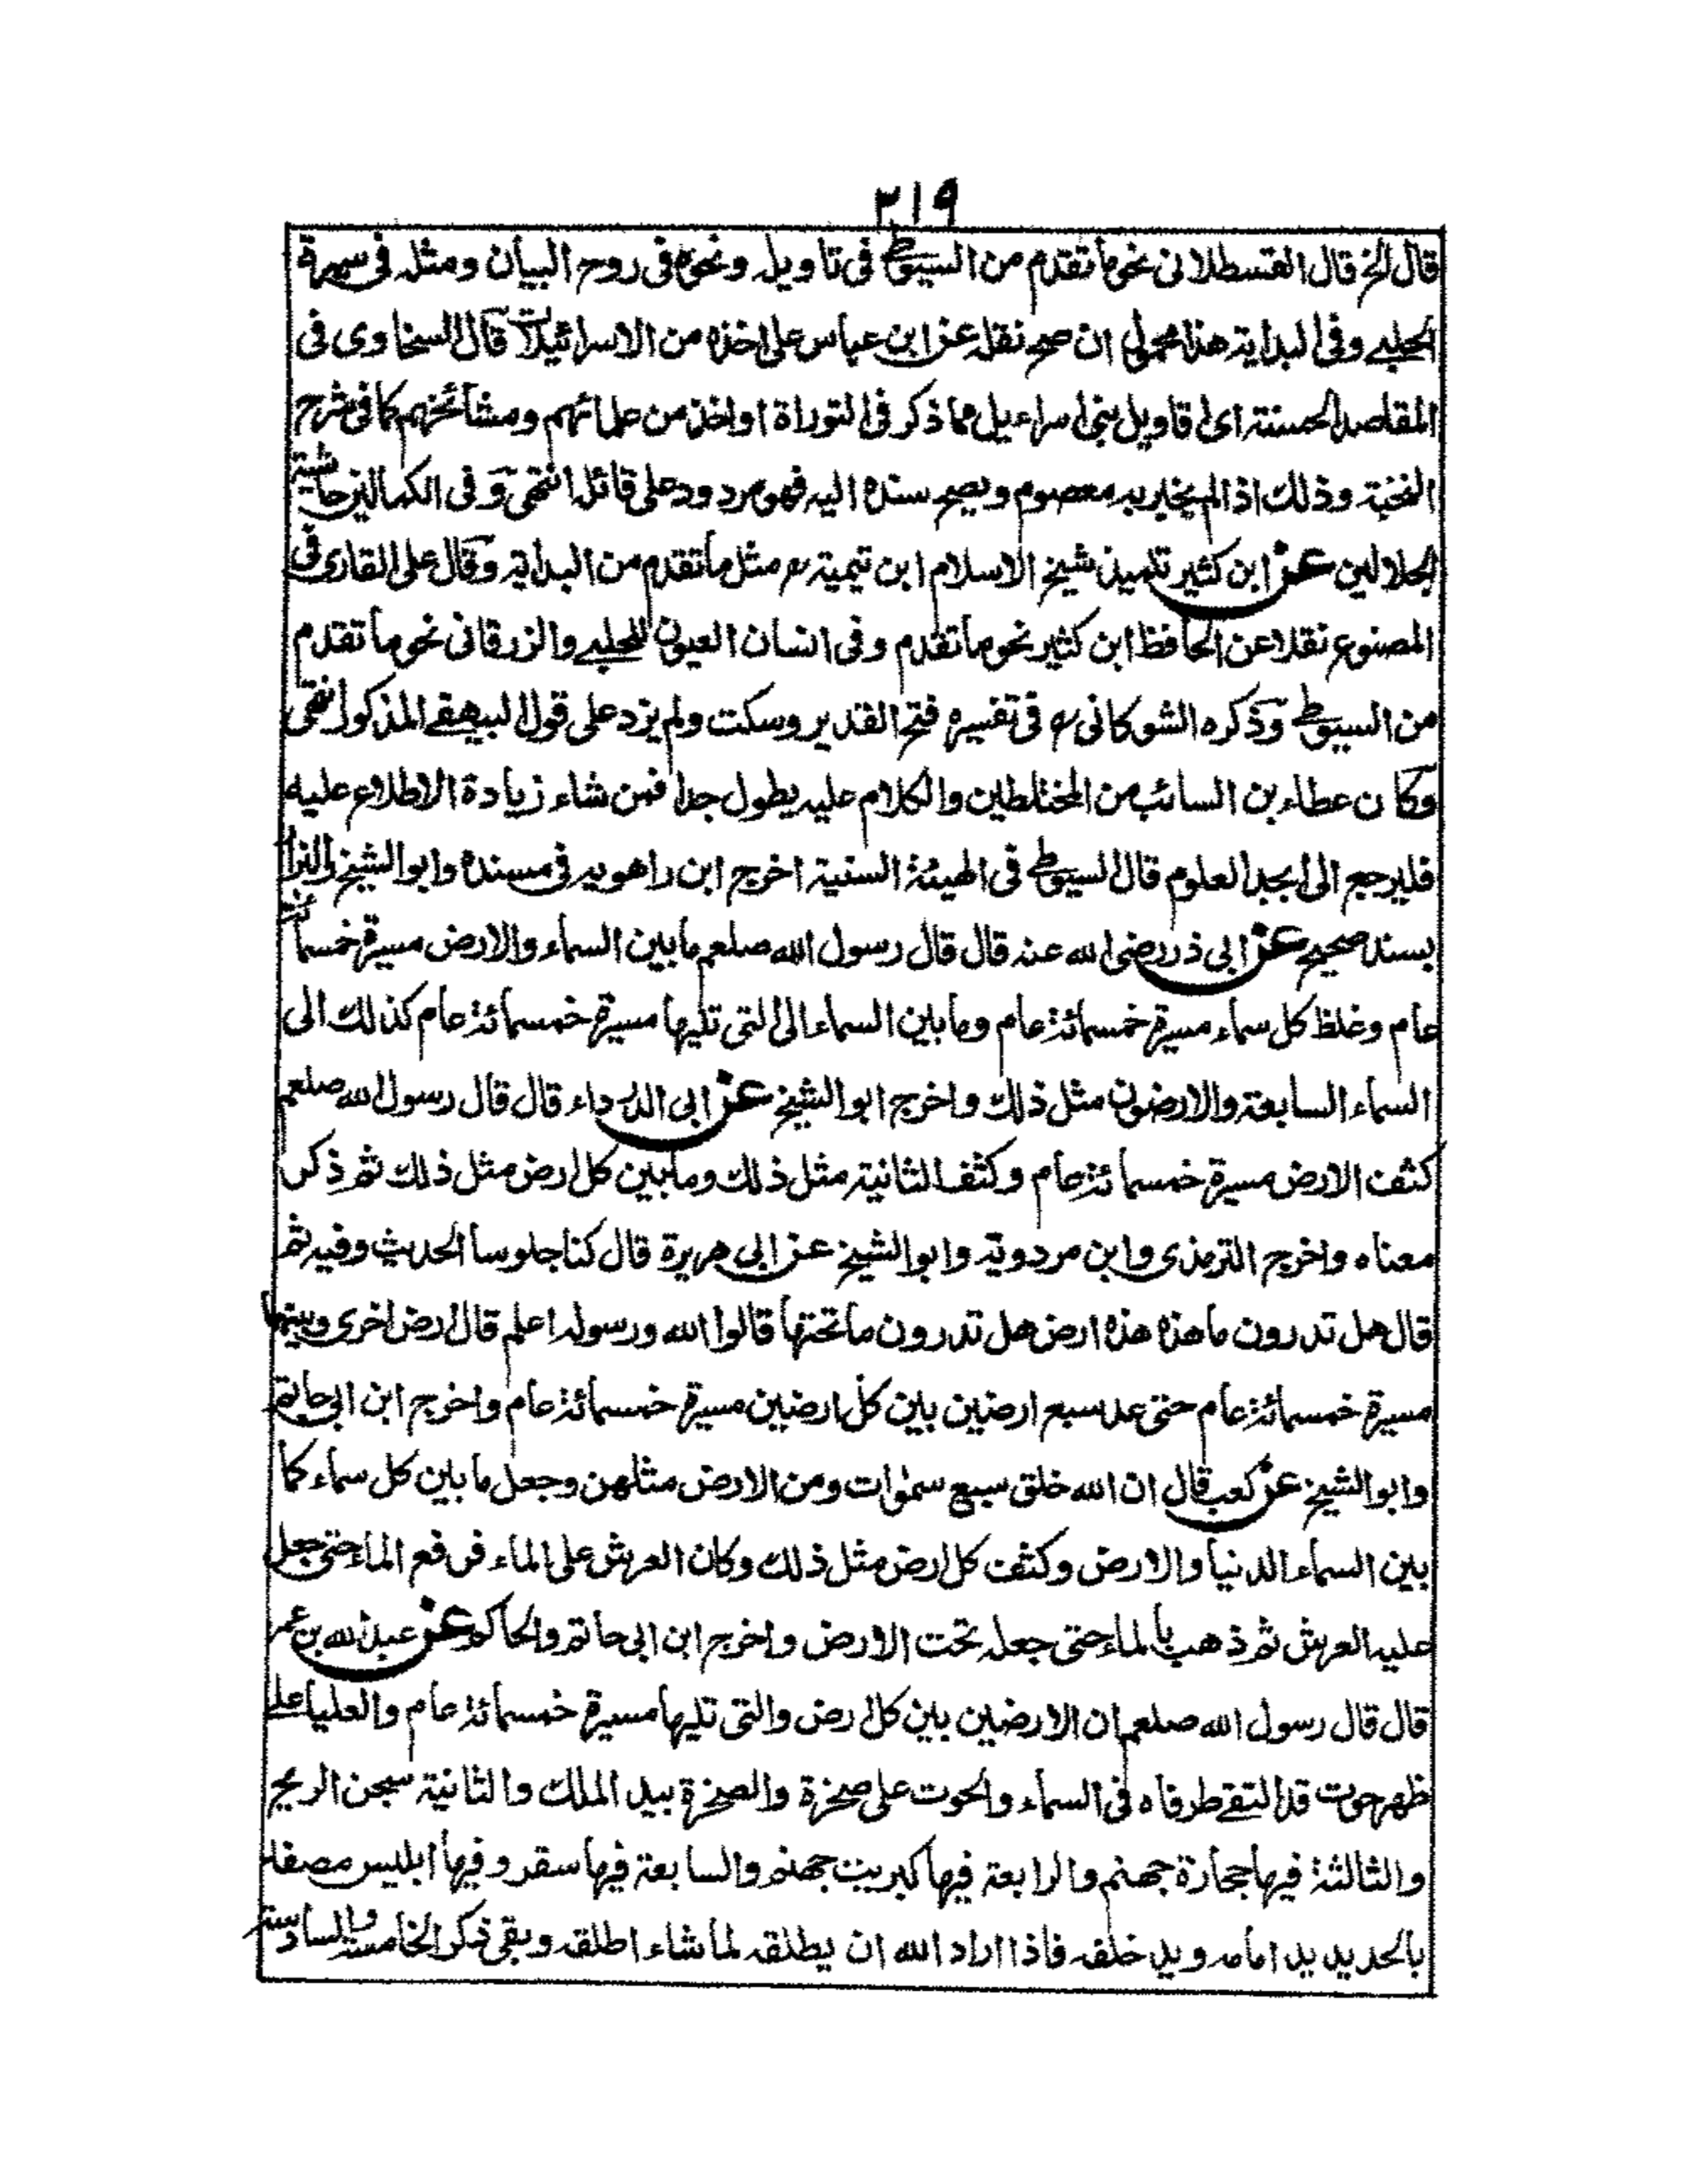 ٣١٩
قال الخ قال القسطلانى نحو ما تقدم من السيوطى فى تاويله ونحوه فى روح البيان ومثله فى سيرة
الحلبى وفى البداية هذا محمول ان صح نقله عن ابن عباس على اخذه من الاسرائيليات قال السخاوى فى
المقاصد الحسنة اى اقاويل بنى اسراءيل مما ذكر فى التوراة او اخذ من علمائهم ومشائخهم كما فى شرح
النخبة وذلك اذا لم يخبر به معصوم ويصح سنده اليه فهو مردود على قائله انتهى وفى الكمالين حاشية
الجلالين عن ابن كثير تلميذ شيخ الاسلام ابن تيمية رح مثل ما تقدم من البداية وقال على القارى فى
المصنوع نقلا عن الحافظ ابن كثير نحو ما تقدم وفى انسان العيون للحلبى والزرقانى نحو ما تقدم
من السيوطى وذكره الشوكانى رح فى تفسيره فتح القدير وسكت ولم يزد على قول البيهقى المذكور انتهى
وكان عطاء بن السائب من المختلطين والكلام عليه يطول جدا فمن شاء زيادة الاطلاع عليه
فليرجع الى ابجد العلوم قال السيوطى فى الهيئة السنية اخرج ابن راهويه فى مسنده وابو الشيخ والبزار
بسند صحيح عن ابى ذر رضى الله عنه قال قال رسول الله صلعم ما بين السماء والارض مسيرة خمسمائة
عام وغلظ كل سماء مسيرة خمسمائة عام وما بين السماء الى التى تليها مسيرة خمسمائة عام كذلك الى
السماء السابعة والارضون مثل ذلك واخرج ابو الشيخ عن ابى الدرداء قال قال رسول الله صلعم
كثف الارض مسيرة خمسمائة عام وكثف الثانية مثل ذلك وما بين كل ارض مثل ذلك ثم ذكر
معناه واخرج الترمذى وابن مردويه وابو الشيخ عن ابى هريرة قال كنا جلوسا الحديث وفيه ثم
قال هل تدرون ما هذه هذه ارض هل تدرون ما تحتها قالوا الله ورسوله اعلم قال ارض اخرى وبينهما
مسيرة خمسمائة عام حتى عد سبع ارضين بين كل ارضين مسيرة خمسمائة عام واخرج ابن ابى حاتم
وابو الشيخ عن كعب قال ان الله خلق سبع سمٰوات ومن الارض مثلهن وجعل ما بين كل سماء كما
بين السماء الدنيا والارض وكثف كل ارض مثل ذلك وكان العرش على الماء فرفع الماء حتى جعل
عليه العرش ثم ذهب بالماء حتى جعله تحت الارض واخرج ابن ابى حاتم والحاكم عن عبد الله بن عمر
قال قال رسول الله صلعم ان الارضين بين كل ارض والتى تليها مسيرة خمسمائة عام والعليا على
ظهر حوت قد التقى طرفاه فى السماء والحوت على صخرة والصخرة بيد الملك والثانية سجن الريح
والثالثة فيها حجارة جهنم والرابعة فيها كبريت جهنم والسابعة فيها سقر وفيها ابليس مصفد
بالحديد يد امامه ويد خلفه فاذا اراد الله ان يطلقه لما شاء اطلقه وبقى ذكر الخامسة والسادسة